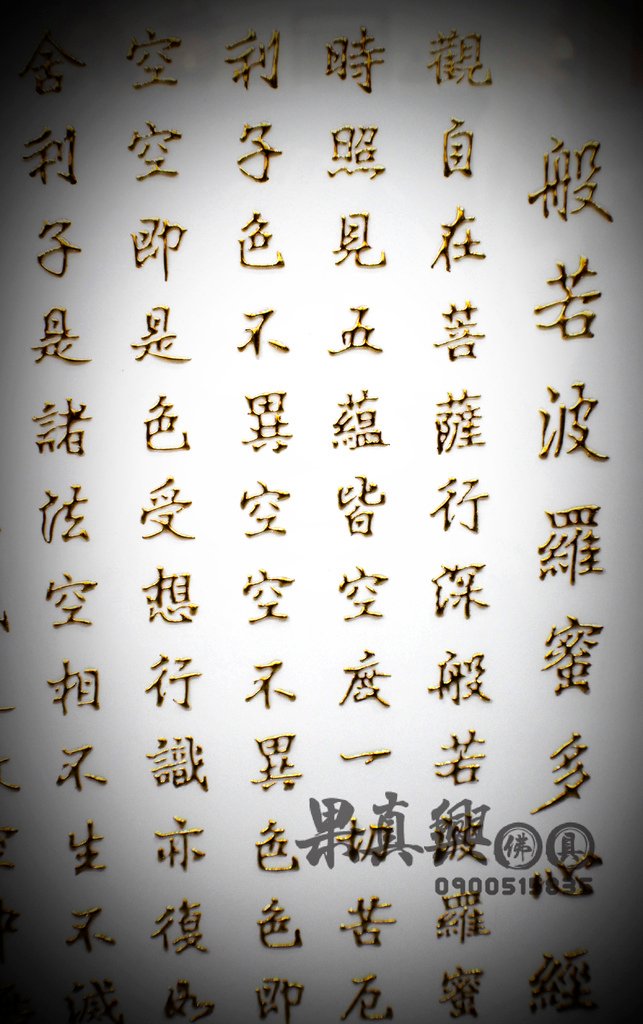 般若波羅蜜多心經
觀自在菩薩行深般若波羅蜜
時照見五蘊皆空度一切苦厄
利子色不異空空不異色色即
空空即是色受想行識亦復如
舍利子是諸法空相不生不滅
果真興佛具